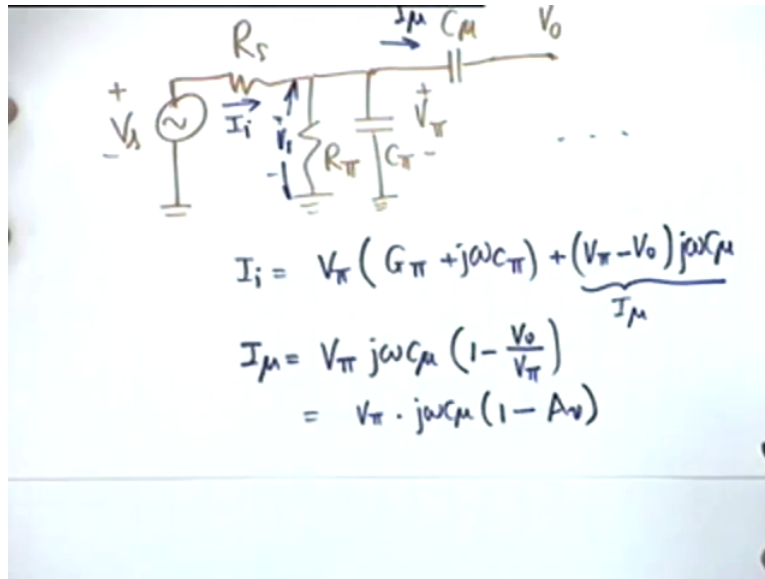 Iμ Cμ Vo
Rs
+ +
Vs Ii Vπ
- Rπ Cπ - . . . .
Ii = Vπ ( Gπ + jωCπ ) + (Vπ – Vo) jωCμ
Iμ
Iμ = Vπ jωCμ (1 – Vo/Vπ)
= Vπ . jωCμ (1 – Av)